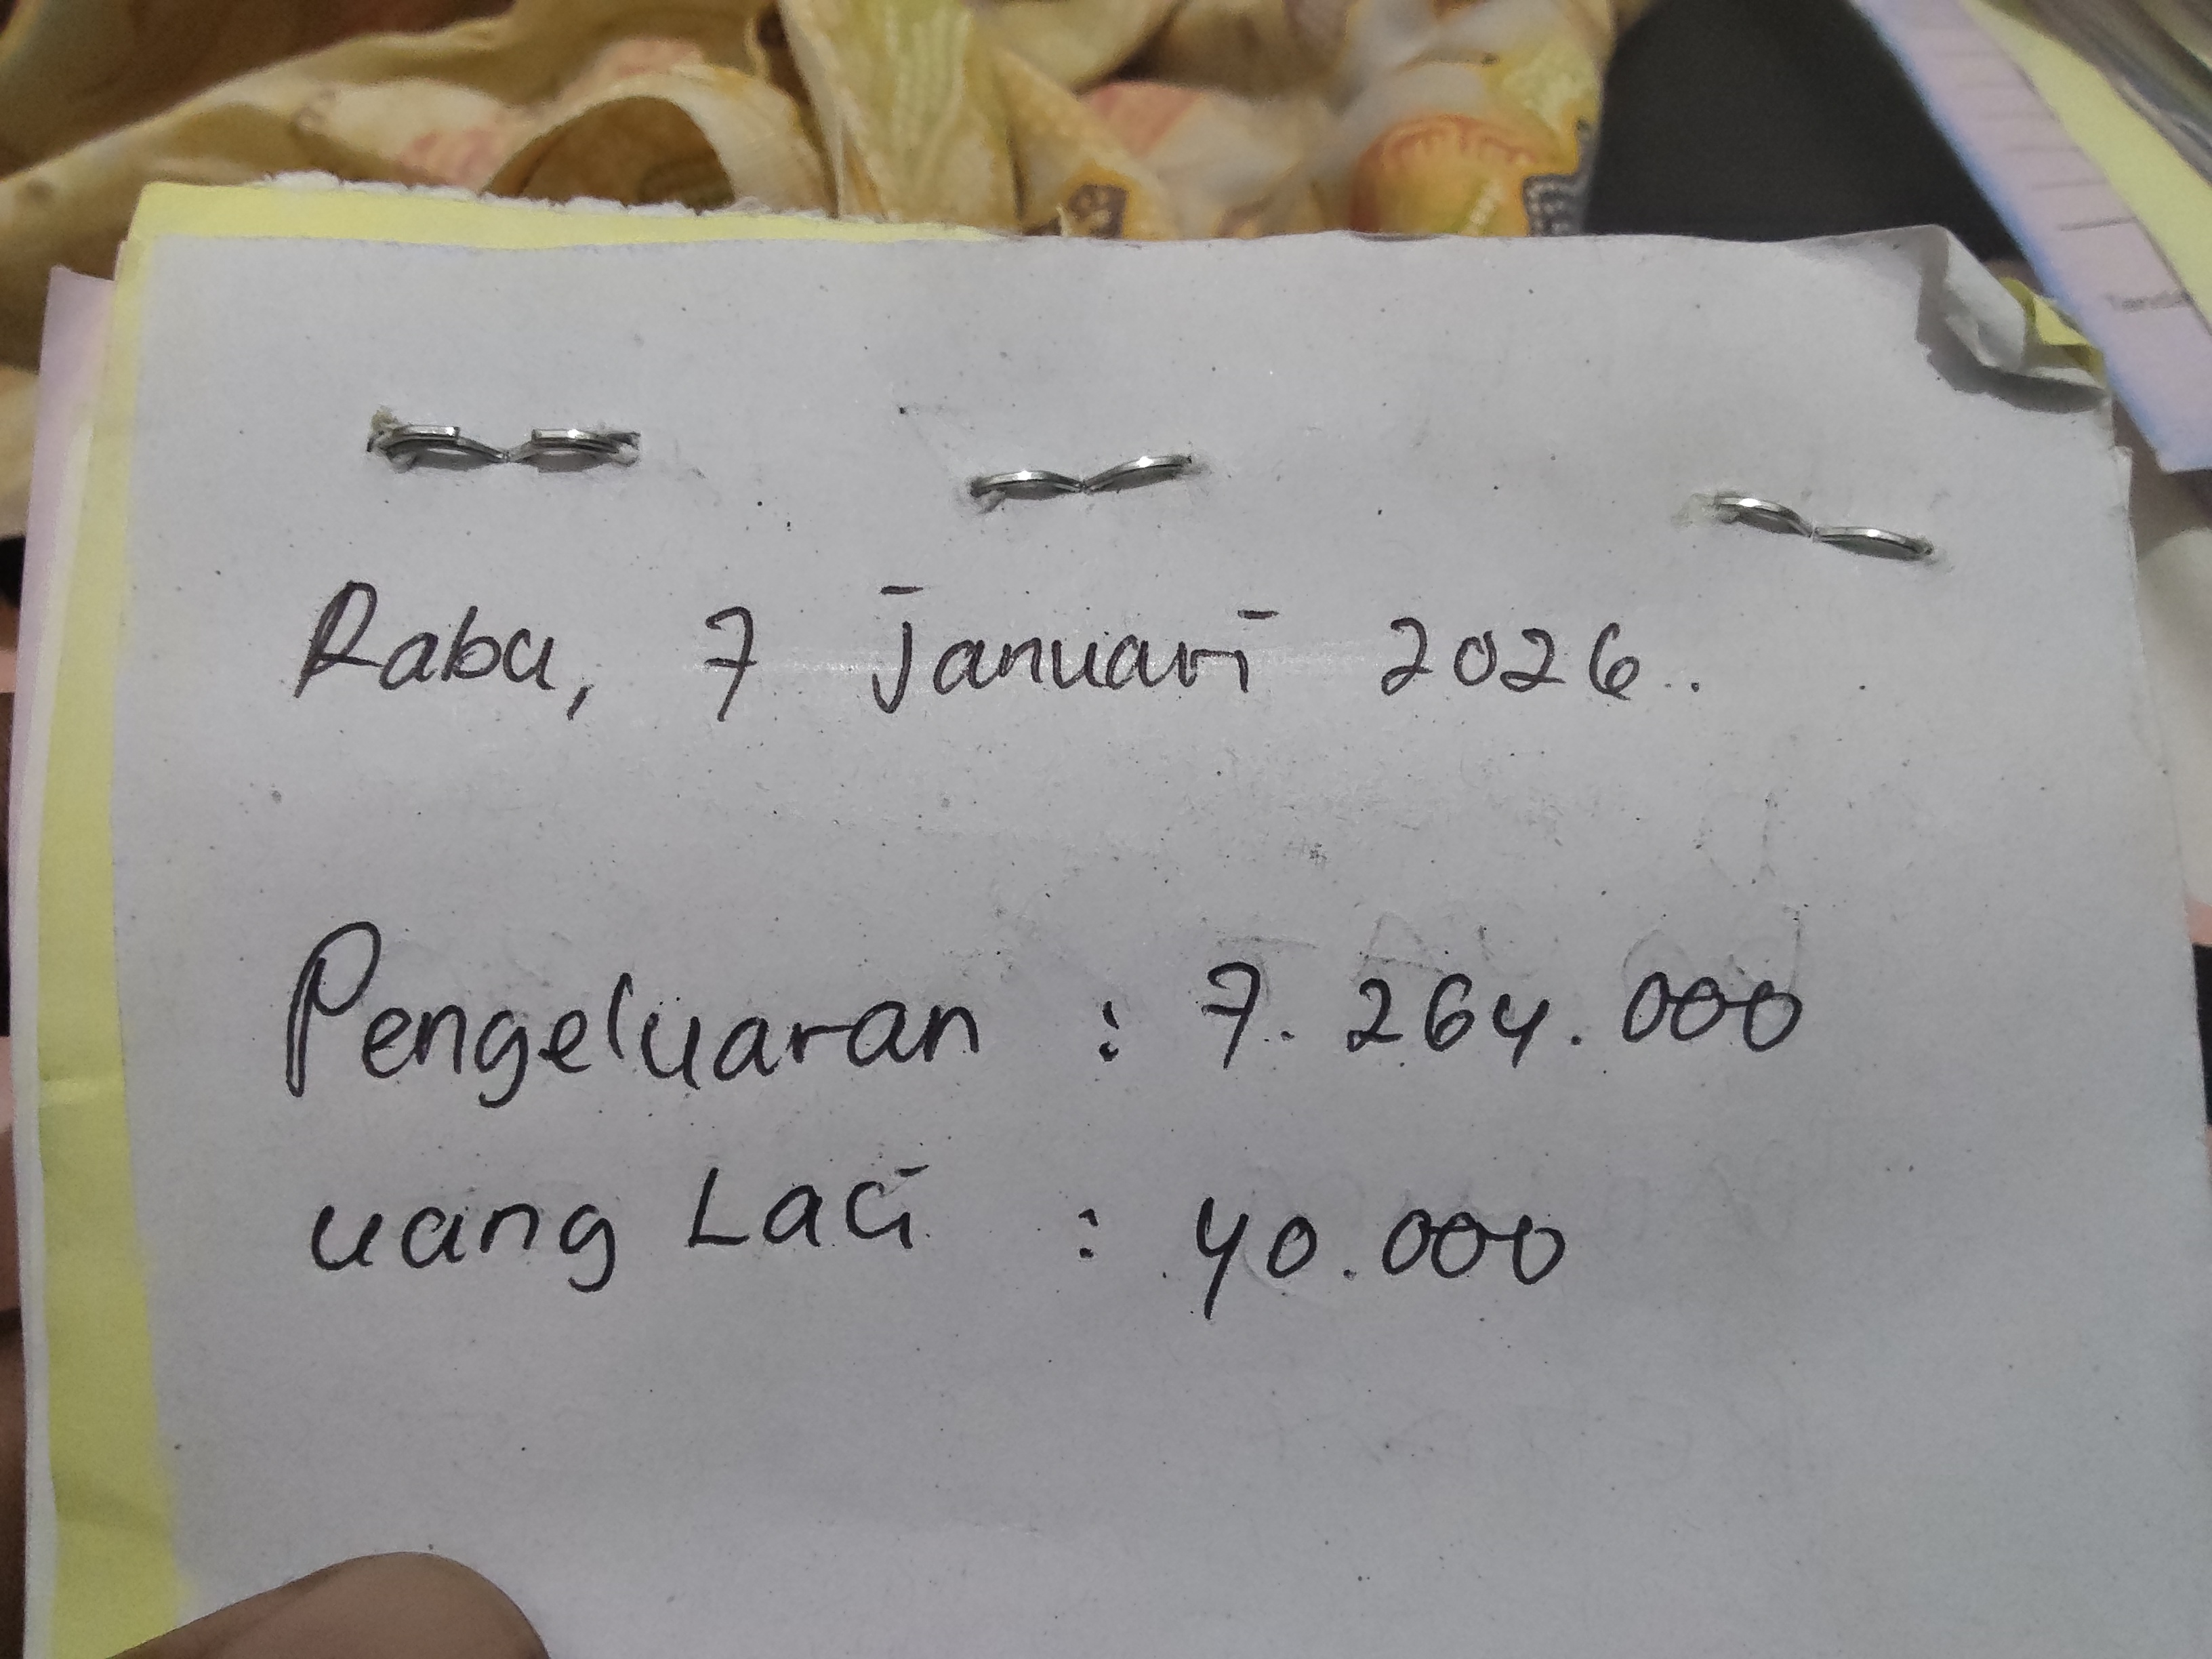 Rabu, 7 Januari 2026..
Pengeluaran : 7. 264.000
uang Laci : 40.000